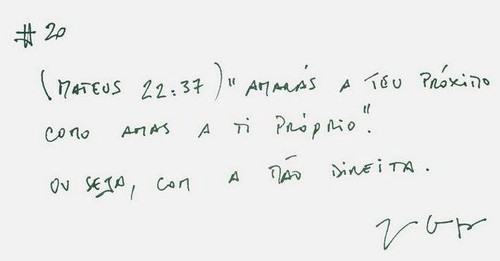 #20
(MATEUS 22:37) "AMARÁS A TEU PRÓXIMO
COMO AMAS A TI PRÓPRIO".
OU SEJA, COM A MÃO DIREITA.